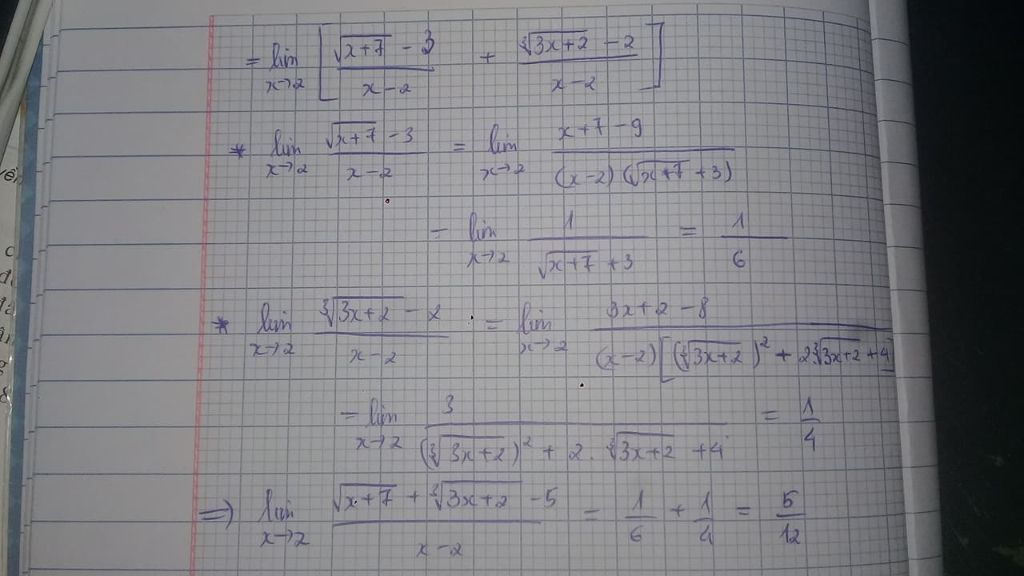 = lim x→2 [ (√(x+7) - 3)/(x-2) + (∛(3x+2) - 2)/(x-2) ]
* lim x→2 (√(x+7) - 3)/(x-2) = lim x→2 (x+7-9)/((x-2)(√(x+7) + 3))
= lim x→2 1/(√(x+7) + 3) = 1/6
* lim x→2 (∛(3x+2) - 2)/(x-2) = lim x→2 (3x+2-8)/((x-2)[(∛(3x+2))² + 2∛(3x+2) + 4])
= lim x→2 3/((∛(3x+2))² + 2.∛(3x+2) + 4) = 1/4
=> lim x→2 (√(x+7) + ∛(3x+2) - 5)/(x-2) = 1/6 + 1/4 = 5/12